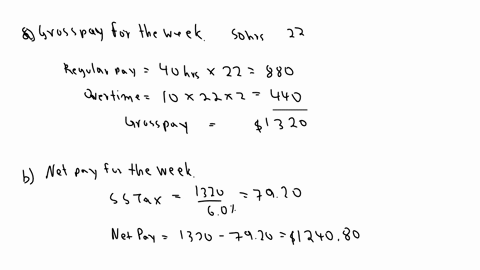 a) Gross pay for the week. 50hrs 22
Regular pay = 40 hrs x 22 = 880
Overtime = 10 x 22 x 2 = 440
Gross pay = $1320
b) Net pay for the week.
SS Tax = 1320 / 6.0% = 79.20
Net Pay = 1320 - 79.20 = $1240.80